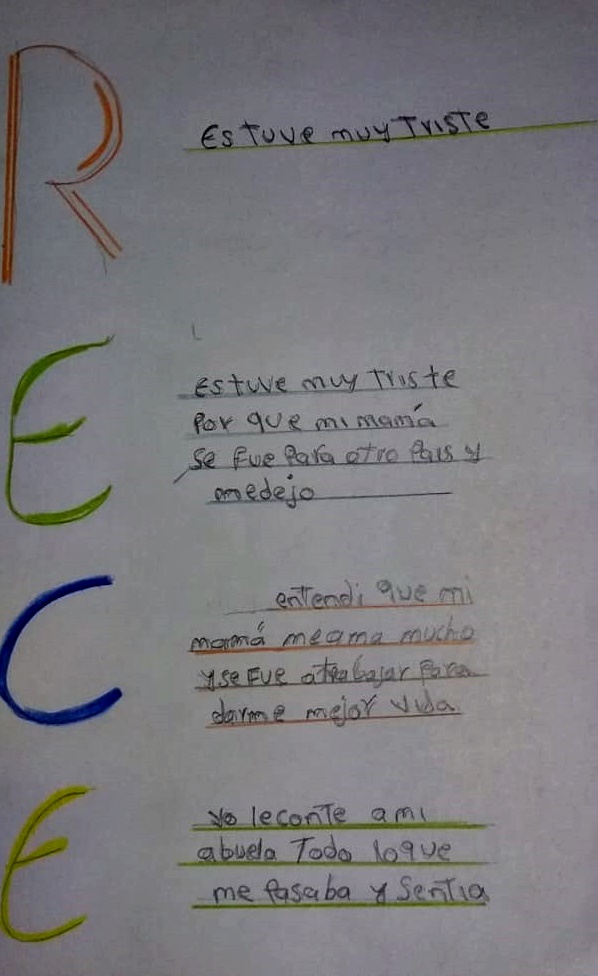 R
Estuve muy Triste
E
Estuve muy Triste
Por que mi mamá
se fue Para otro Pais y
medejo
C
entendi que mi
mamá meama mucho
y se fue atrabajar Para
darme mejor vida.
E
yo leconte a mi
abuela Todo loque
me Pasaba y Sentia